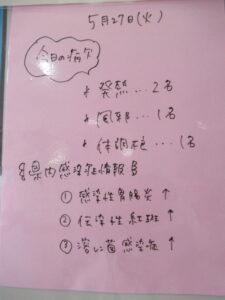 5月27日(火)
今日の病欠
* 発熱…2名
* 風邪…1名
* 体調不良…1名
県内感染症情報
① 感染性胃腸炎 ↑
② 伝染性紅斑 ↑
③ 溶レン菌感染症 ↑